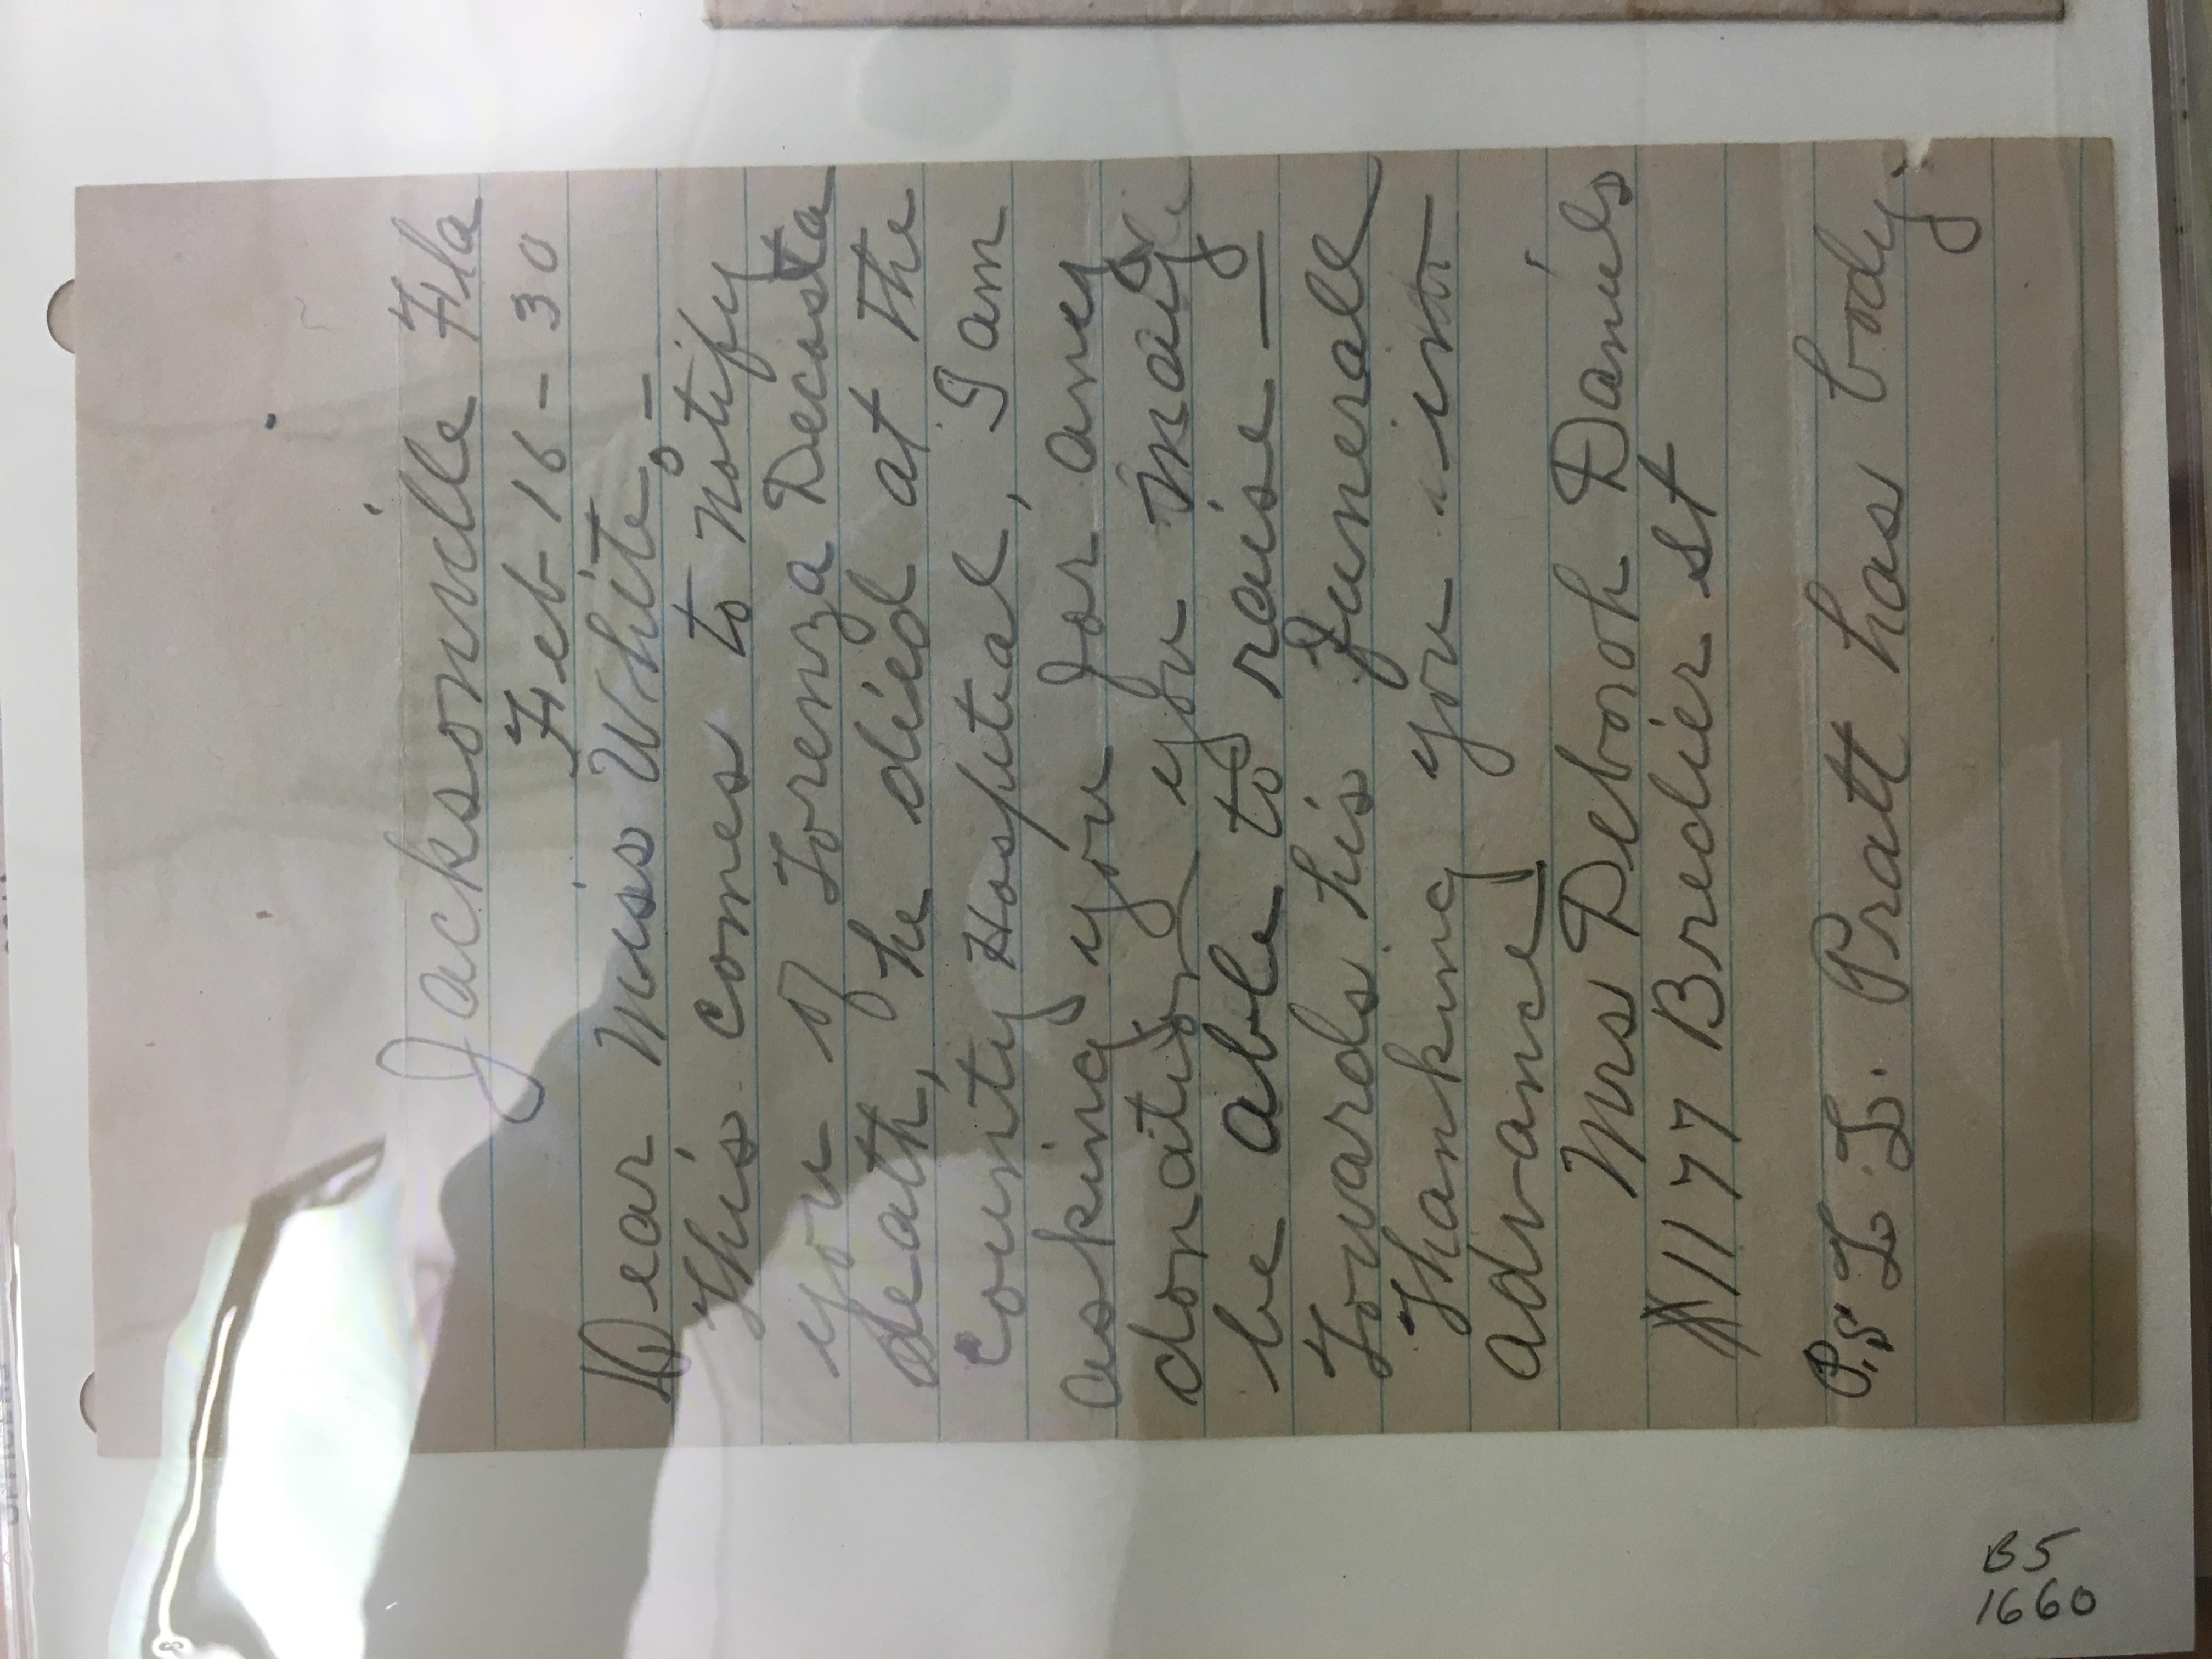 Jacksonville Fla
Feb 16 - 30
Dear Miss White, -
This comes to notify
you of Lorenza Decosta
death, he died at the
County Hospitial, I am
asking you for any
donation you may
be able to raise —
Towards his Funerall
Thanking you in
advance
Mrs Deboroh Daniels
1177 Bredier St
P.S L. L. Pratt has body.
B5
1660